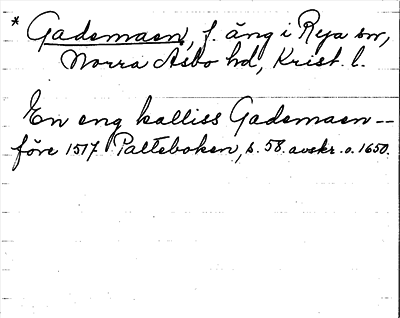 * Gadsmaen, f. äng i Rya sn,
Norra Åsbo hd, Krist. l.
En eng kalliss Gadsmaen --
före 1517 Palteboken, s. 58. avskr. o. 1650.